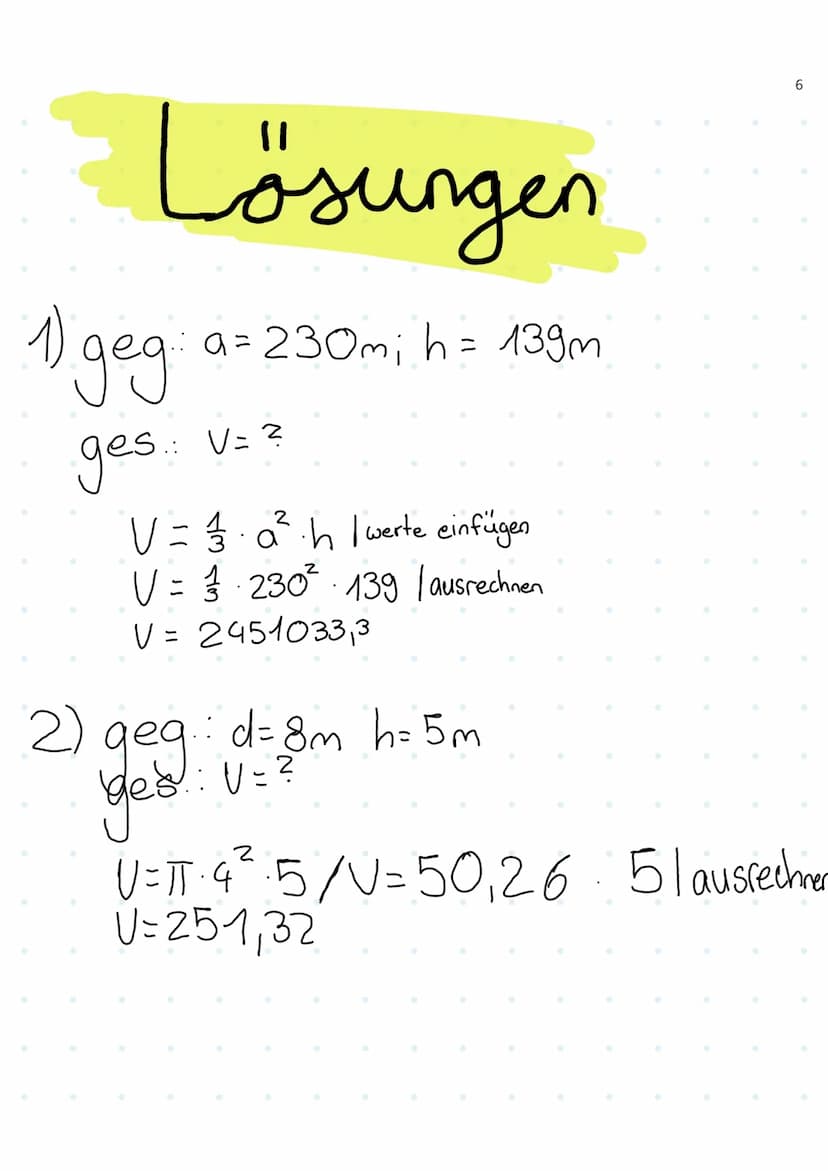 6
Lösungen
1) geg.: a = 230m; h = 139m
ges.: V = ?
V = 1/3 · a² · h | werte einfügen
V = 1/3 · 230² · 139 | ausrechnen
V = 2451033,3
2) geg.: d= 8m h= 5m
ges.: V = ?
V = π · 4² · 5 / V = 50,26 · 5 | ausrechnen
V = 251,32